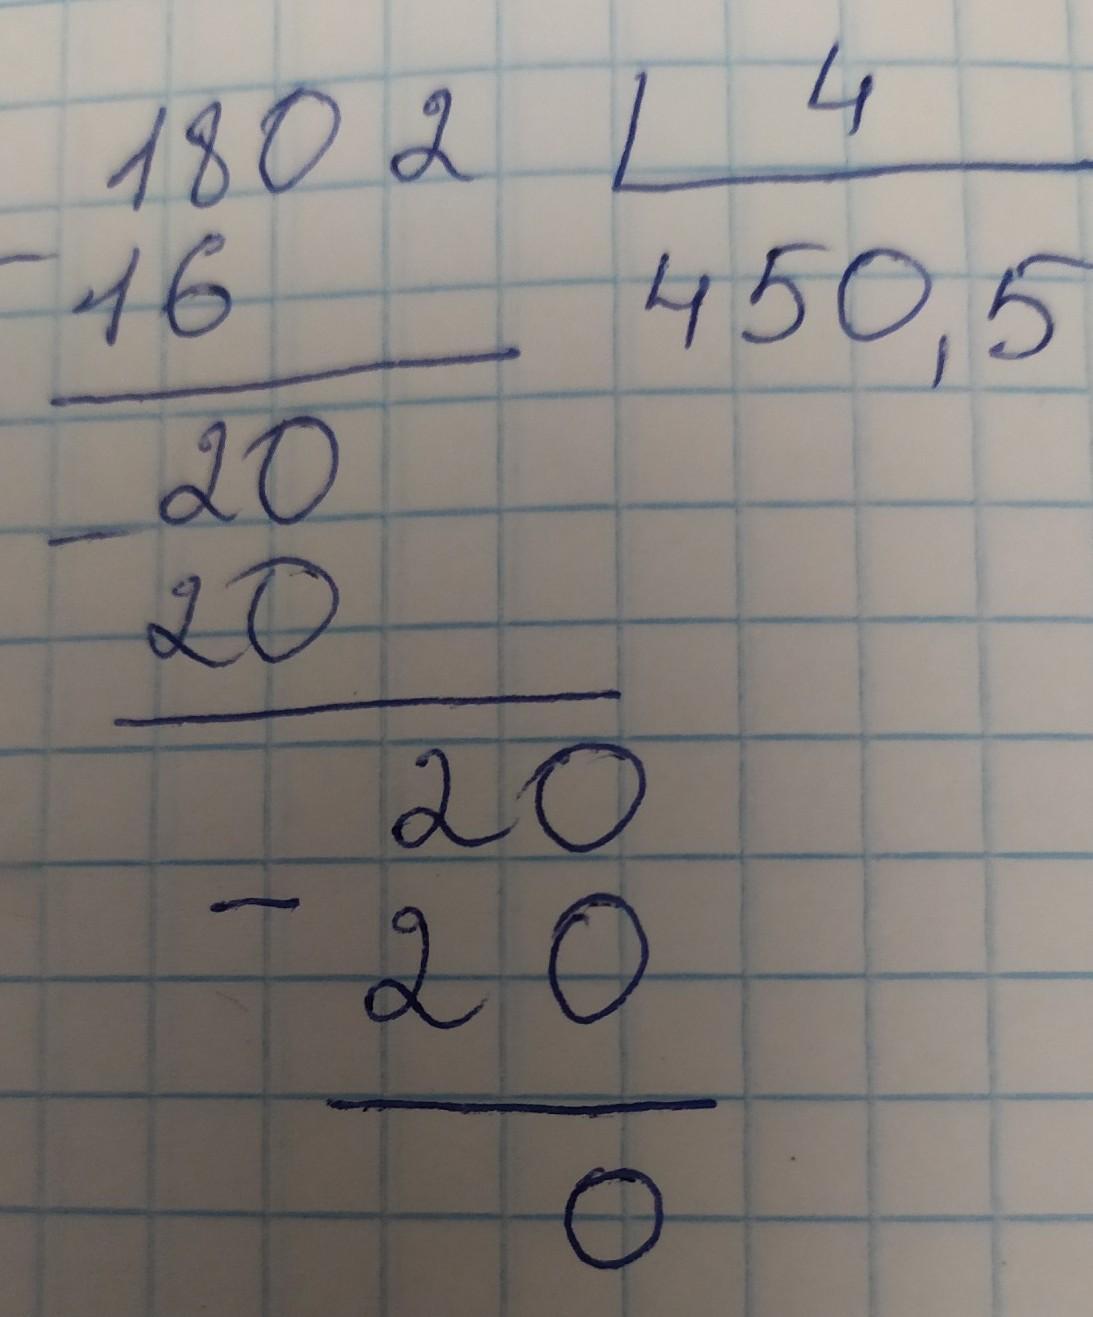 1802 4
- 16 450,5
20
- 20
20
- 20
0